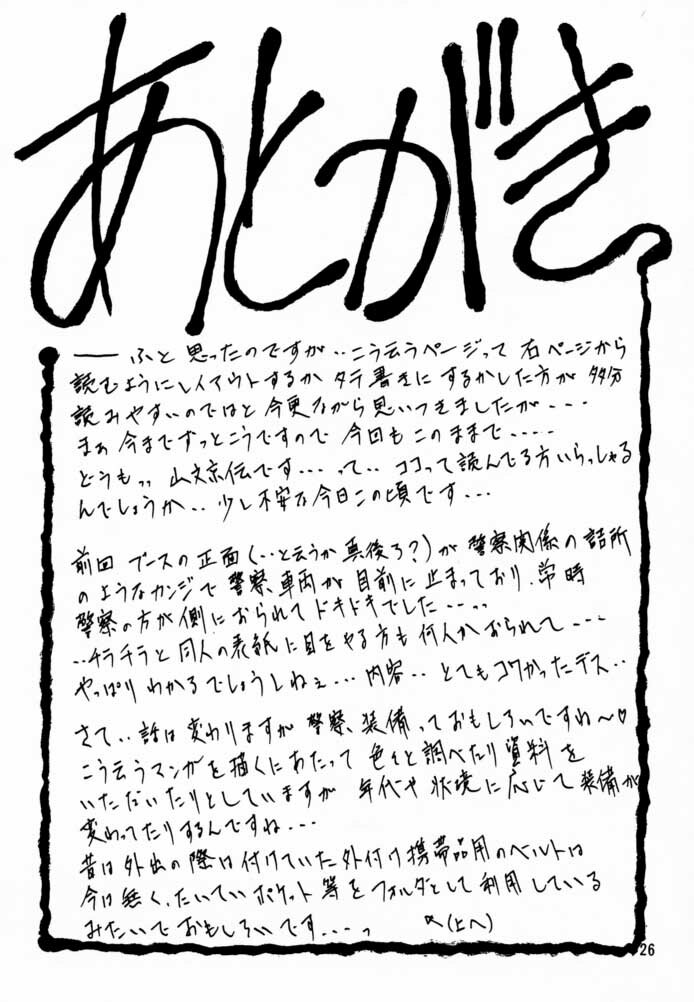 あとがき
── ふと思ったのですが‥こう云うページって右ページから
読むようにレイアウトするかタテ書きにするかした方が多分
読みやすいのではと今更ながら思いつきましたが---
まぁ今までずっとこうですので今回もこのままで-----
どうもっ。山文京伝です---って‥ココって読んでる方いらっしゃる
んでしょうか‥少し不安な今日この頃です---
前回ブースの正面(‥と云うか真後ろ?)が警察関係の詰所
のようなカンジで警察車両が目前に止まっており、常時
警察の方が側におられてドキドキでした----
‥チラチラと同人の表紙に目をやる方も何人かおられて---
やっぱりわかるでしょうしねぇ---内容‥とてもコワかったデス‥
さて‥話は変わりますが警察装備っておもしろいですね〜♡
こう云うマンガを描くにあたって色々と調べたり資料を
いただいたりとしていますが年代や状境に応じて装備が
変わってたりするんですね---
昔は外出の際は付けていた外付け携帯品用のベルトは
今は無く、たいていポケット等をフォルダとして利用している
みたいでおもしろいです---っ
(上へ)
26